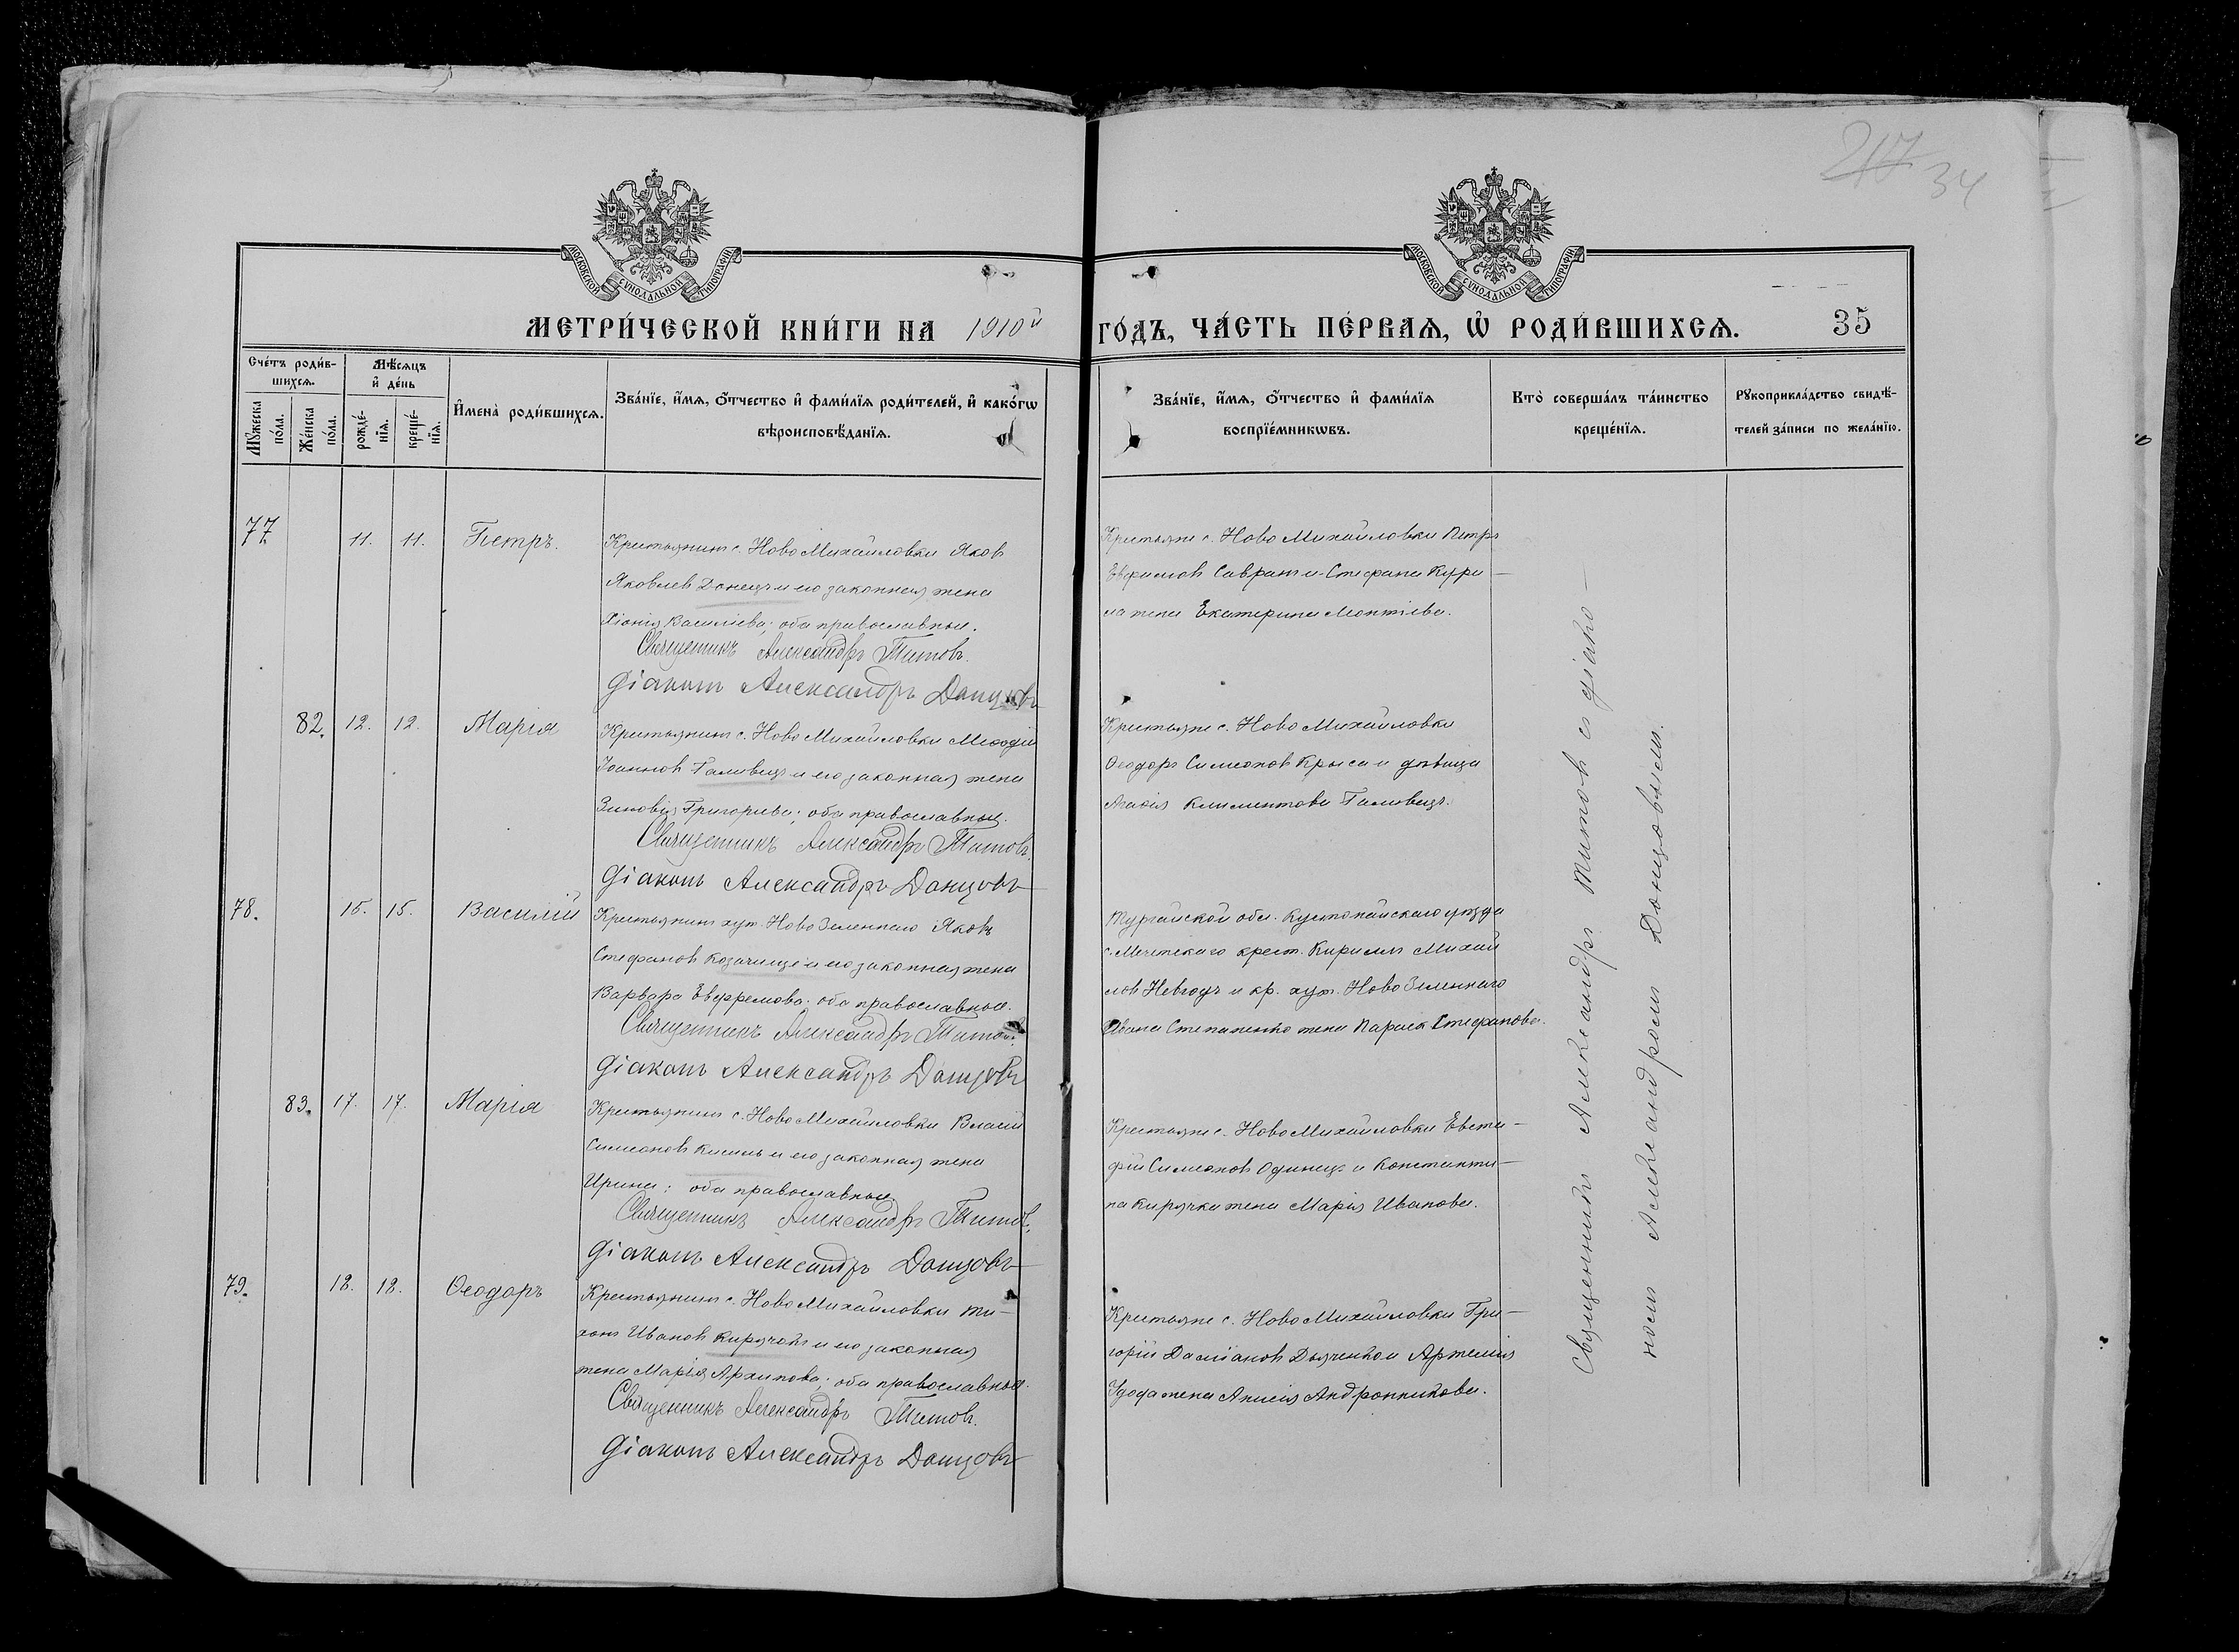 217 34
МОСКОВСКОЙ СѴНОДАЛЬНОЙ ТИПОГРАФІИ
МОСКОВСКОЙ СѴНОДАЛЬНОЙ ТИПОГРАФІИ
МЕТРИ́ЧЕСКОЙ КНИ́ГИ НА 1910й ГО́ДЪ, ЧА́СТЬ ПЕ́РВАѦ, Ѡ РОДИ́ВШИХСѦ. 35
Сче́тъ роди́в-
шихсѧ.
Мꙋжеска по́ла.
Же́нска по́ла.
Мѣ́сѧцъ
и҆ де́нь
рожде́-
нїѧ.
креще́-
нїѧ.
И҆мена̀ роди́вшихсѧ.
Зва́нїе, и҆́мѧ, ѻ҆́тчество и҆ фами́лїѧ роди́телей, и҆ како́гѡ
вѣроисповѣ́данїѧ.
Зва́нїе, и҆́мѧ, ѻ҆́тчество и҆ фами́лїѧ
воспрїе́мникѡвъ.
Кто̀ соверша́лъ та́инство
креще́нїѧ.
Рꙋкоприкла́дство свидѣ́-
телей за́писи по жела́нїю.
77 11. 11. Петръ.
Крестьянинъ с. Ново Михайловки Яковъ
Яковлев Донецъ и его законная жена
Хіонія Василіева; оба православные.
Священникъ Александръ Титовъ.
Діаконъ Александръ Донцовъ
Крестьяне с. Ново Михайловки Петръ
Евфимовъ Савранъ и Стефана Кури-
ла жена Екатерина Леонтіева.
82. 12. 12. Марія
Крестьянинъ с. Ново Михайловки Меѳодій
Іоанновъ Галивецъ и его законная жена
Зиновія Григорьева; оба православные.
Священникъ Александръ Титовъ.
Діаконъ Александръ Донцовъ
Крестьяне с. Ново Михайловки
Ѳеодоръ Симеоновъ Крыса и дѣвица
Агаѳія Климентова Галивецъ.
78. 15. 15. Василій
Крестьянинъ хут. Ново Зеленнаго Яковъ
Стефановъ Козачище и его законная жена
Варвара Евфремова; оба православные.
Священникъ Александръ Титовъ.
Діаконъ Александръ Донцовъ
Тургайской обл. Кустанайскаго уѣзда
с. Мечетскаго крест. Кириллъ Михай
ловъ Невгодъ и кр. хут. Ново Зеленнаго
Ивана Степаненко жена Параск. Стефанова.
83. 17. 17. Марія
Крестьянинъ с. Ново Михайловки Власій
Симеоновъ Кисиль и его законная жена
Ирина; оба православные.
Священникъ Александръ Титовъ.
Діаконъ Александръ Донцовъ
Крестьяне с. Ново Михайловки Евста-
фій Симеоновъ Одинецъ и Константи-
на Кирячка жена Марія Иванова.
79. 18. 18. Ѳеодоръ
Крестьянинъ с. Ново Михайловки Ти-
хонъ Ивановъ Кирячокъ и его законная
жена Марія Архипова; оба православные.
Священникъ Александръ Титовъ.
Діаконъ Александръ Донцовъ
Крестьяне с. Ново Михайловки Гри-
горій Даміановъ Дьяченко и Артемія
Удода жена Анисія Андронникова.
Священникъ Александръ Титовъ съ діако-
номъ Александромъ Донцовымъ.